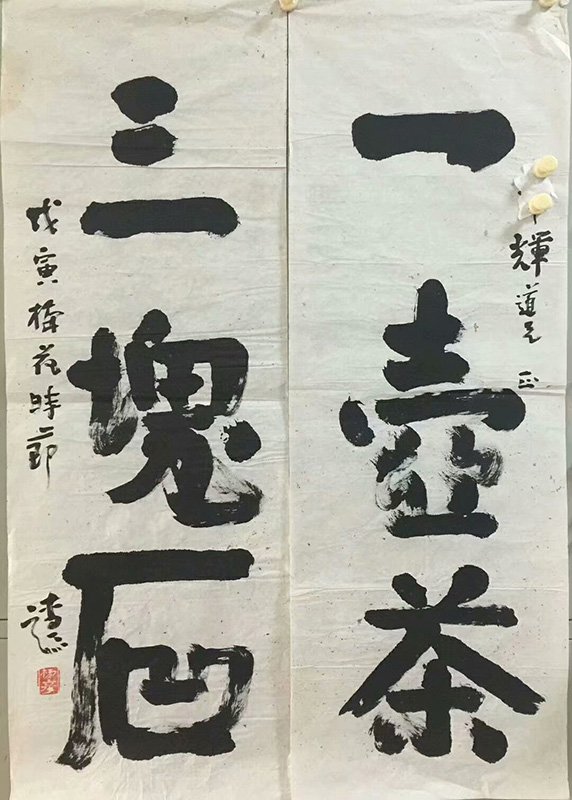 輝道兄 正
一壺茶
三塊石
戊寅梅花時節